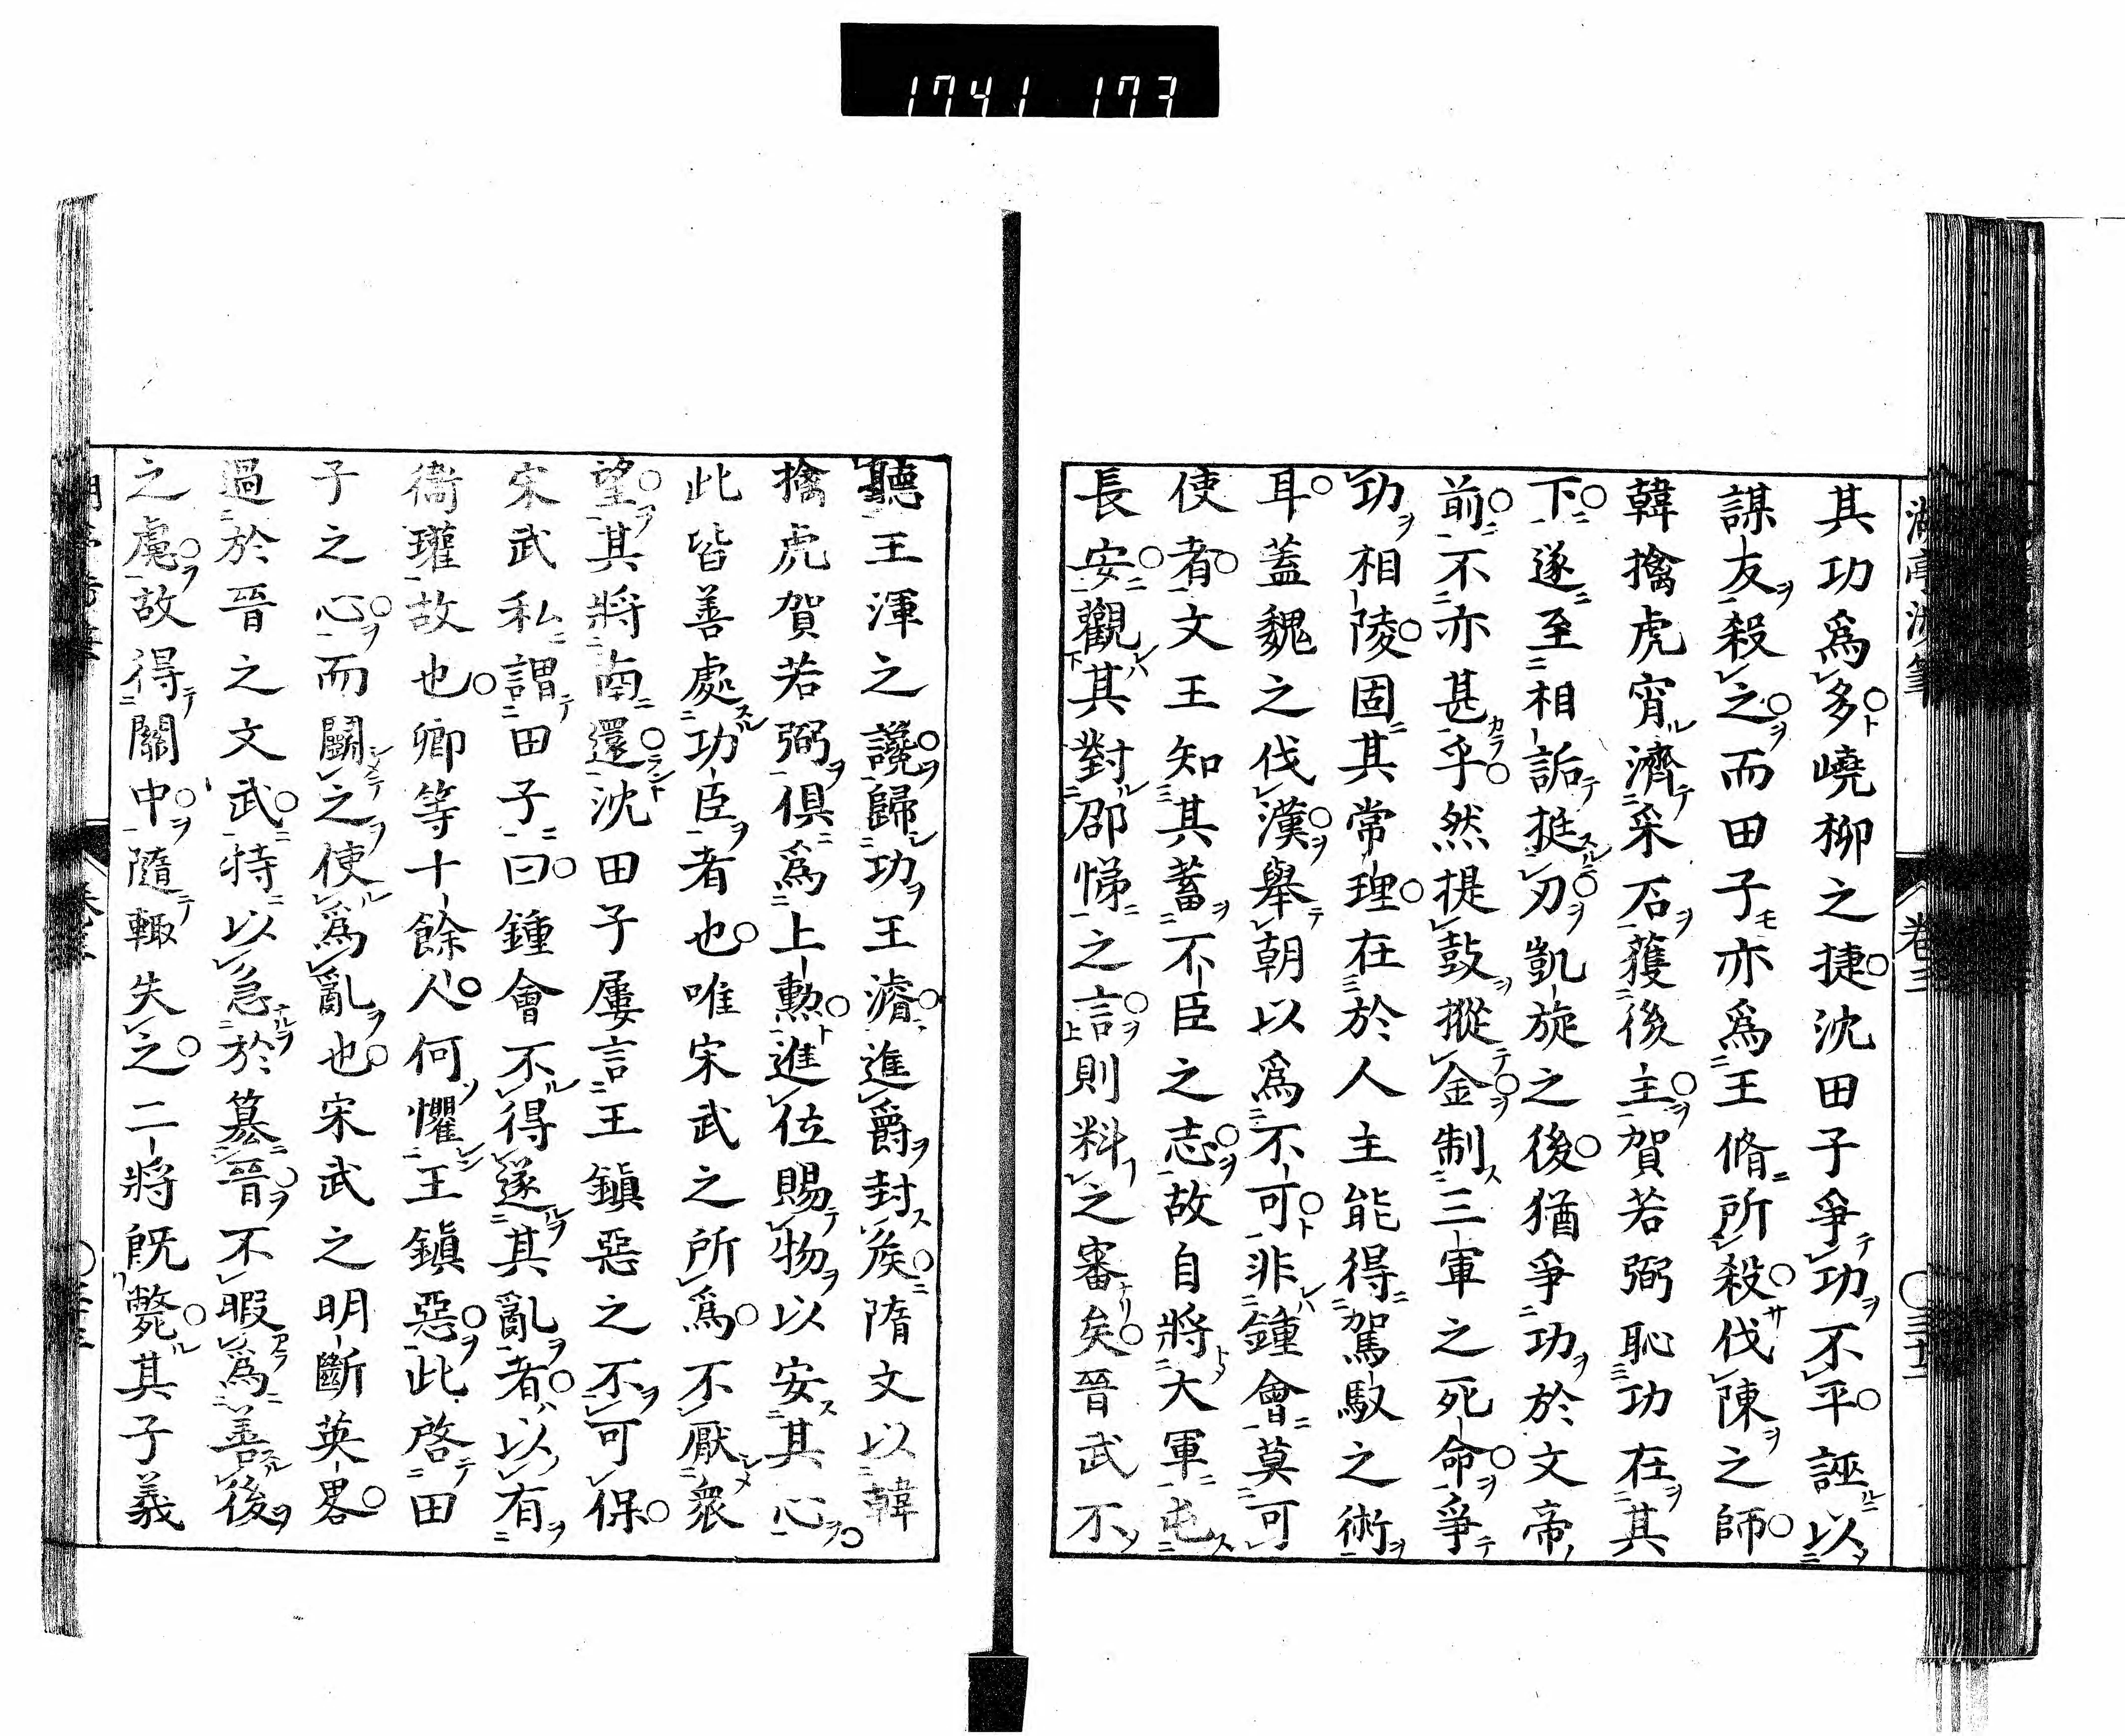 1741 173
其功爲多嶢柳之捷沈田子爭功不平誣以
謀友殺之而田子亦爲王脩所殺伐陳之師
韓擒虎宵濟采石獲後主賀若弼恥功在其
下遂至相詬挺刃凱旋之後猶爭功於文帝
前不亦甚乎然提鼓摐金制三軍之死命爭
功相陵固其常理在於人主能得駕馭之術
耳蓋魏之伐漢舉朝以爲不可非鍾會莫可
使者文王知其蓄不臣之志故自將大軍屯
長安觀其對邵悌之言則料之審矣晉武不
聽王渾之讒歸功王濬進爵封矦隋文以韓
擒虎賀若弼俱爲上勲進位賜物以安其心
此皆善處功臣者也唯宋武之所爲不厭衆
望其將南還沈田子屢言王鎮惡之不可保
宋武私謂田子曰鍾會不得遂其亂者以有
衞瓘故也卿等十餘人何懼王鎮惡此啓田
子之心而鬭之使爲亂也宋武之明斷英畧
過於晉之文武特以急於簒晉不暇爲善後
之慮故得關中隨輙失之二將既斃其子義